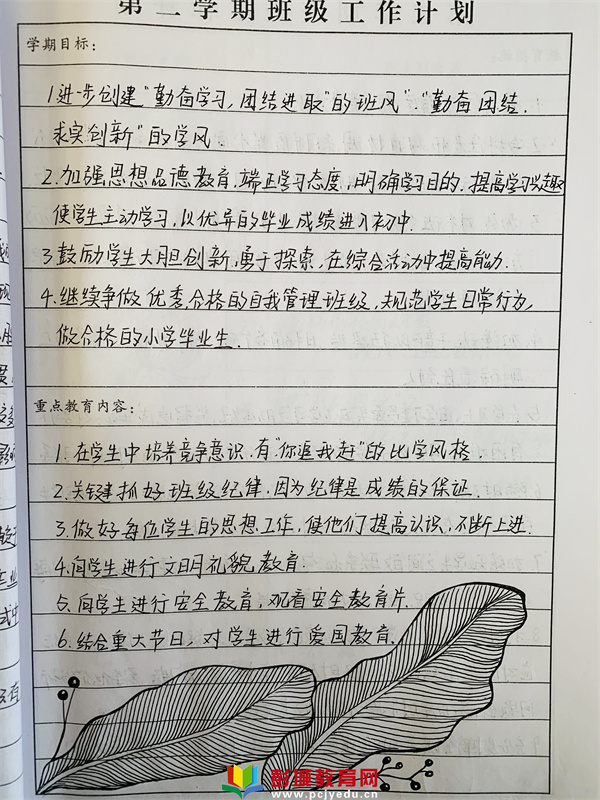 第二学期班级工作计划
学期目标：
1进一步创建"勤奋学习，团结进取"的班风"勤奋 团结.
求实创新"的学风.
2.加强思想品德教育.端正学习态度,明确学习目的.提高学习兴趣
使学生主动学习,以优异的毕业成绩进入初中.
3鼓励学生大胆创新,勇于探索,在综合活动中提高能力.
4.继续争做优秀,合格的自我管理班级,规范学生日常行为,
做合格的小学毕业生.
重点教育内容：
1.在学生中培养竞争意识.有"你追我赶"的比学风格.
2.关键抓好班级纪律,因为纪律是成绩的保证.
3.做好每位学生的思想工作,使他们提高认识,不断上进.
4.向学生进行文明礼貌教育.
5.向学生进行安全教育,观看安全教育片.
6.结合重大节日,对学生进行爱国教育.
彭捷教育网
www.pcjyedu.cn